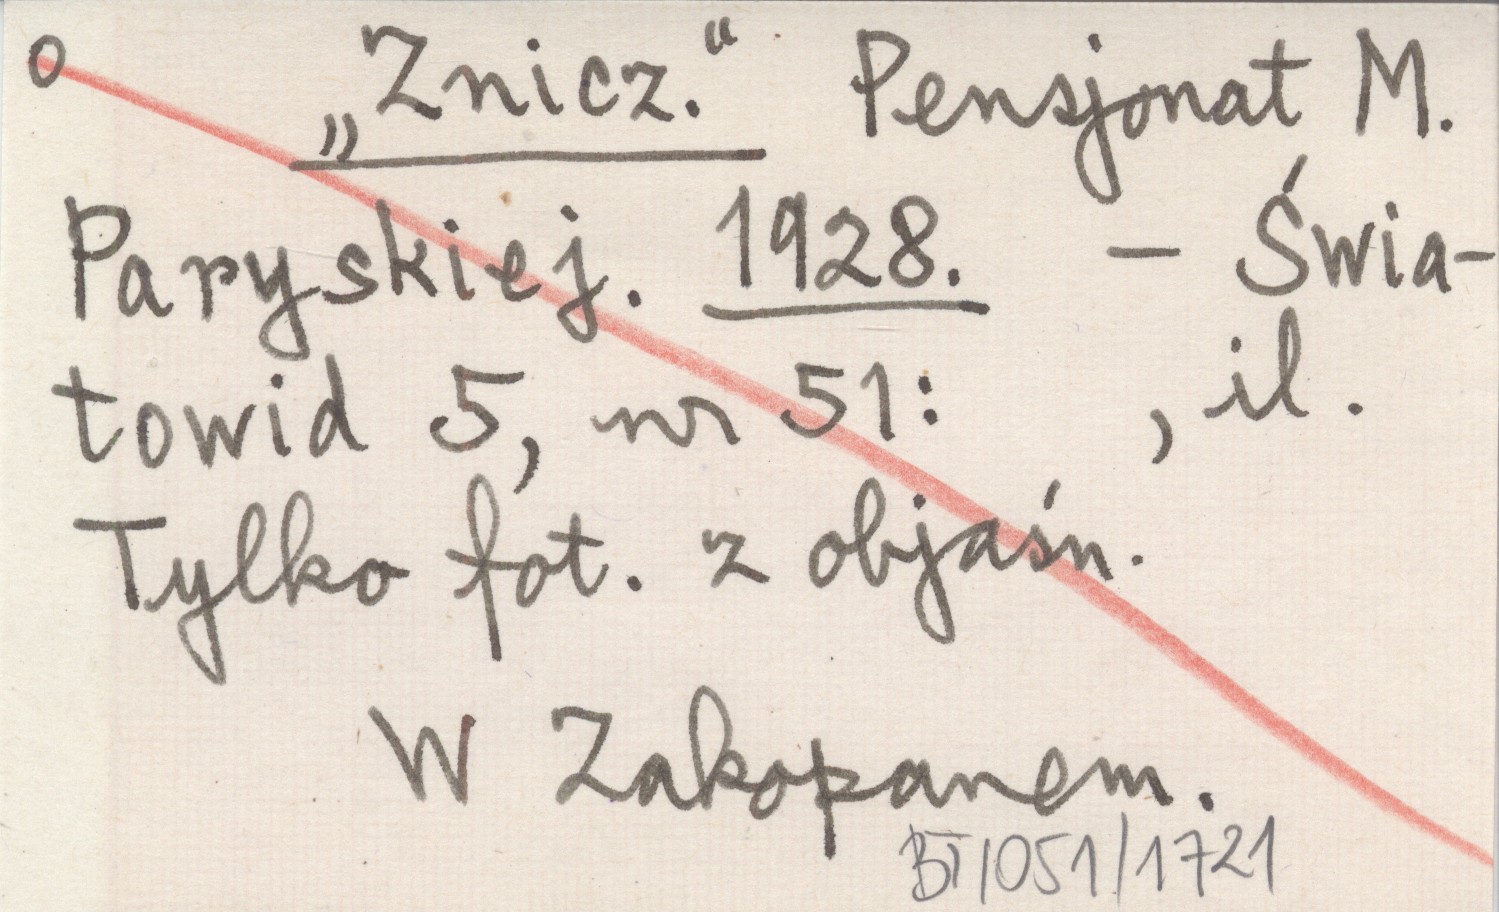 o „Znicz.“ Pensjonat M.
Paryskiej. 1928. – Świa-
towid 5, nr 51: , il.
Tylko fot. z objaśn.
W Zakopanem.
BT/051/1721